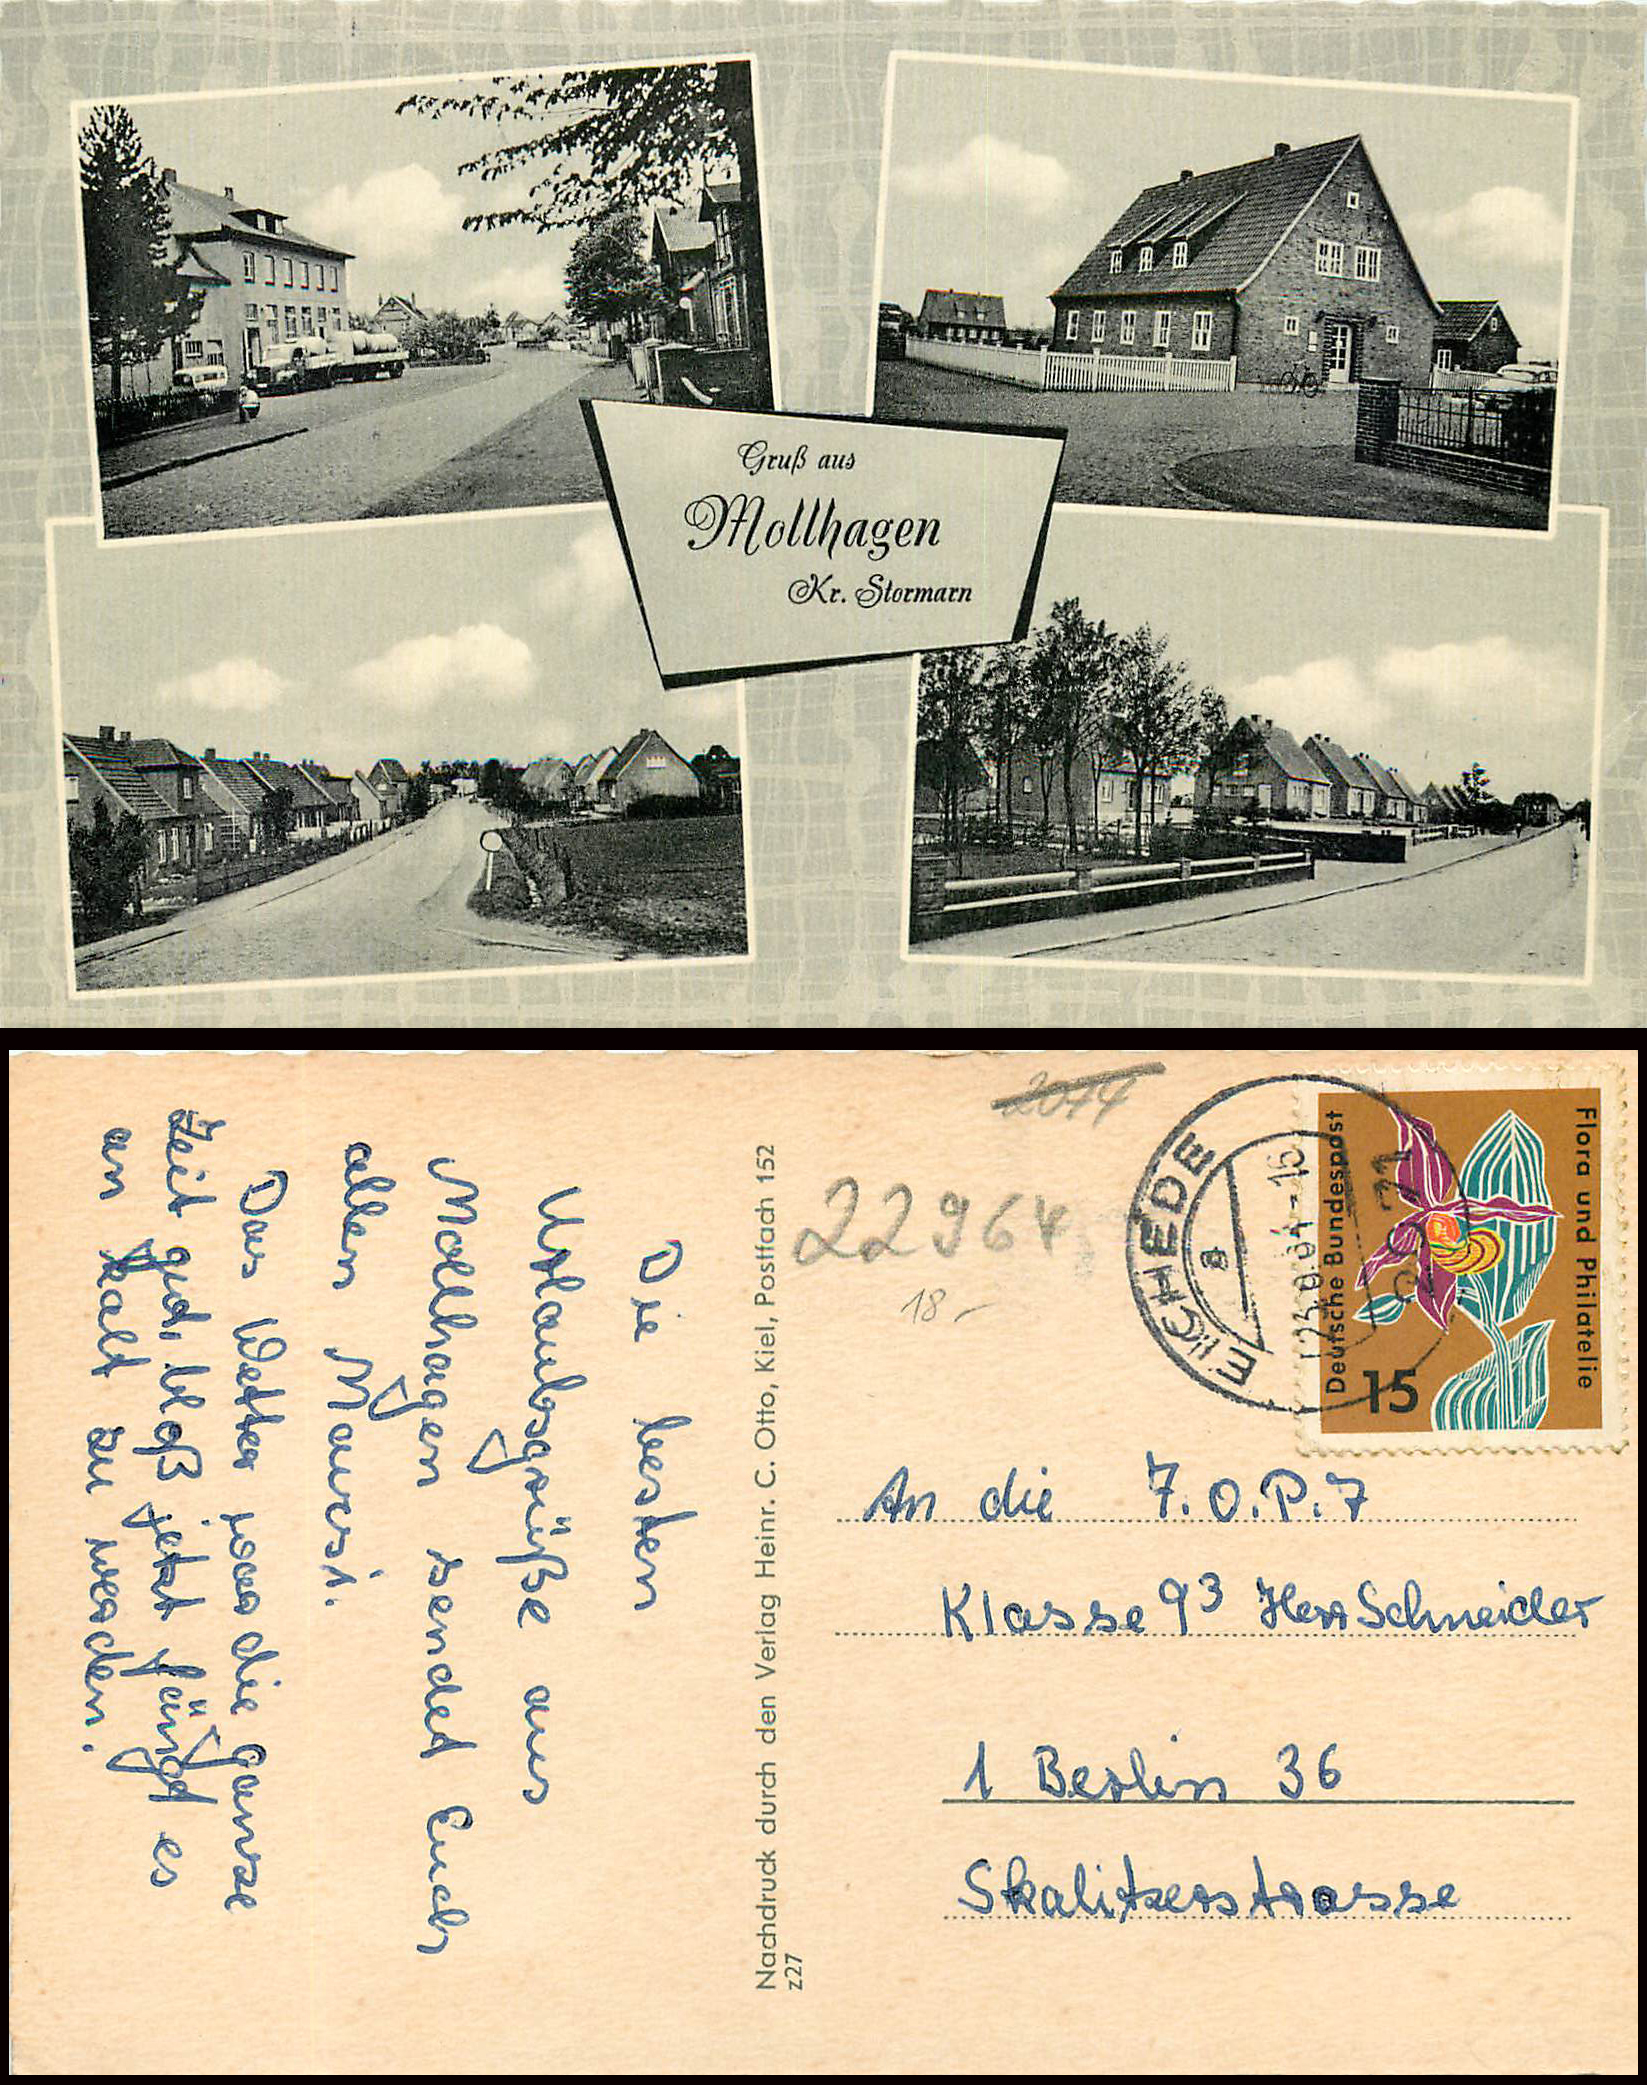 Gruß aus
Mollhagen
Kr. Stormarn
Die besten
Urlaubsgrüße aus
Mollhagen sendet Euch
allen Maursi.
Das Wetter war die ganze
Zeit gut, bloß jetzt fängt es
an kalt zu werden.
Nachdruck durch den Verlag Heinr. C. Otto, Kiel, Postfach 152
z27
2044
22964
18,-
EICHEDE
a
25.8.64-16
Flora und Philatelie
Deutsche Bundespost
15
An die 7.O.P.7
Klasse 9³ Herr Schneider
1 Berlin 36
Skalitzerstrasse